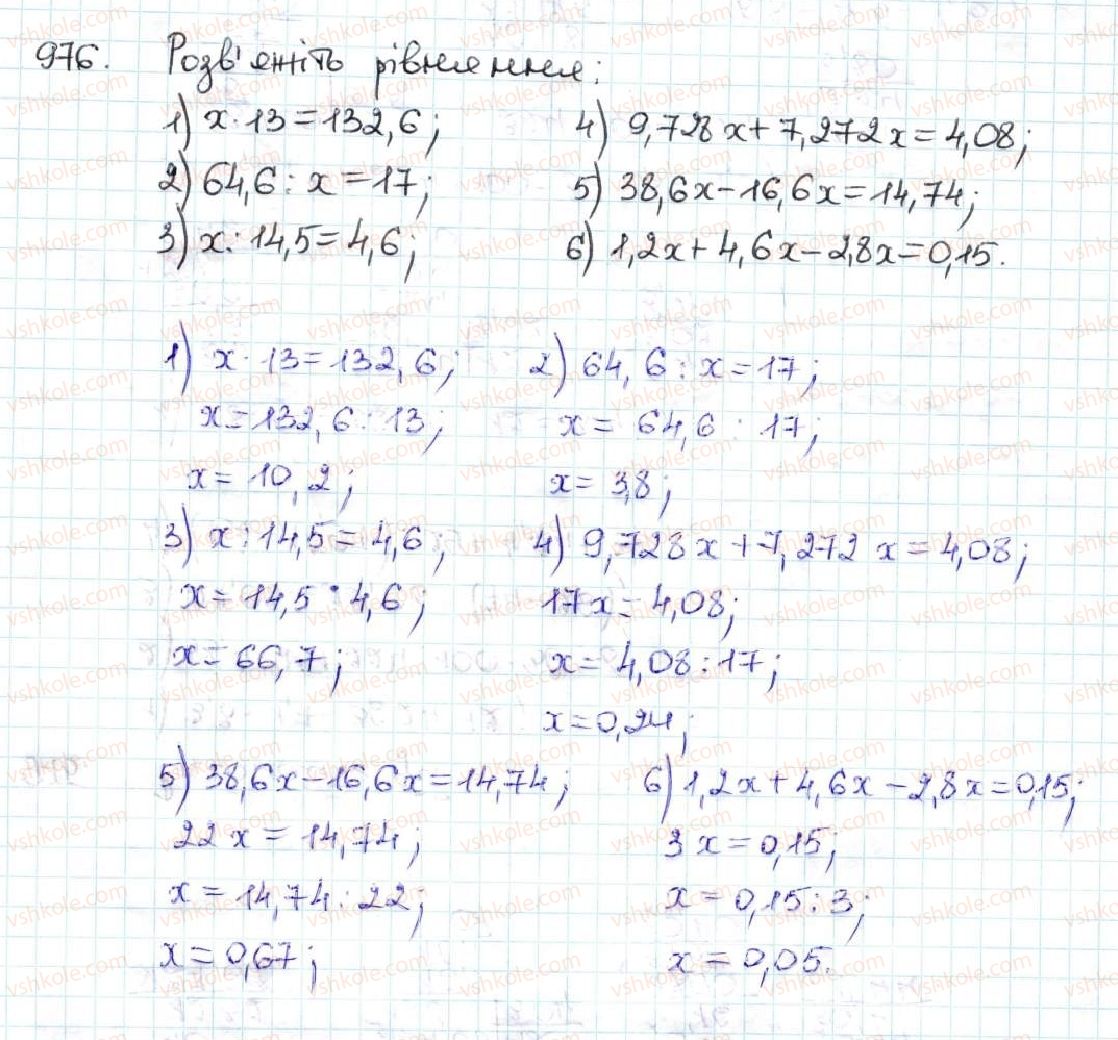 976. Розв'яжіть рівняння:
1) x · 13 = 132,6; 4) 9,728x + 7,272x = 4,08;
2) 64,6 : x = 17; 5) 38,6x – 16,6x = 14,74;
3) x : 14,5 = 4,6; 6) 1,2x + 4,6x – 2,8x = 0,15.
1) x · 13 = 132,6; 2) 64,6 : x = 17;
x = 132,6 : 13; x = 64,6 : 17;
x = 10,2; x = 3,8;
3) x : 14,5 = 4,6; 4) 9,728x + 7,272x = 4,08;
x = 14,5 · 4,6; 17x = 4,08;
x = 66,7; x = 4,08 : 17;
x = 0,24;
5) 38,6x – 16,6x = 14,74; 6) 1,2x + 4,6x – 2,8x = 0,15;
22x = 14,74; 3x = 0,15;
x = 14,74 : 22; x = 0,15 : 3;
x = 0,67; x = 0,05.